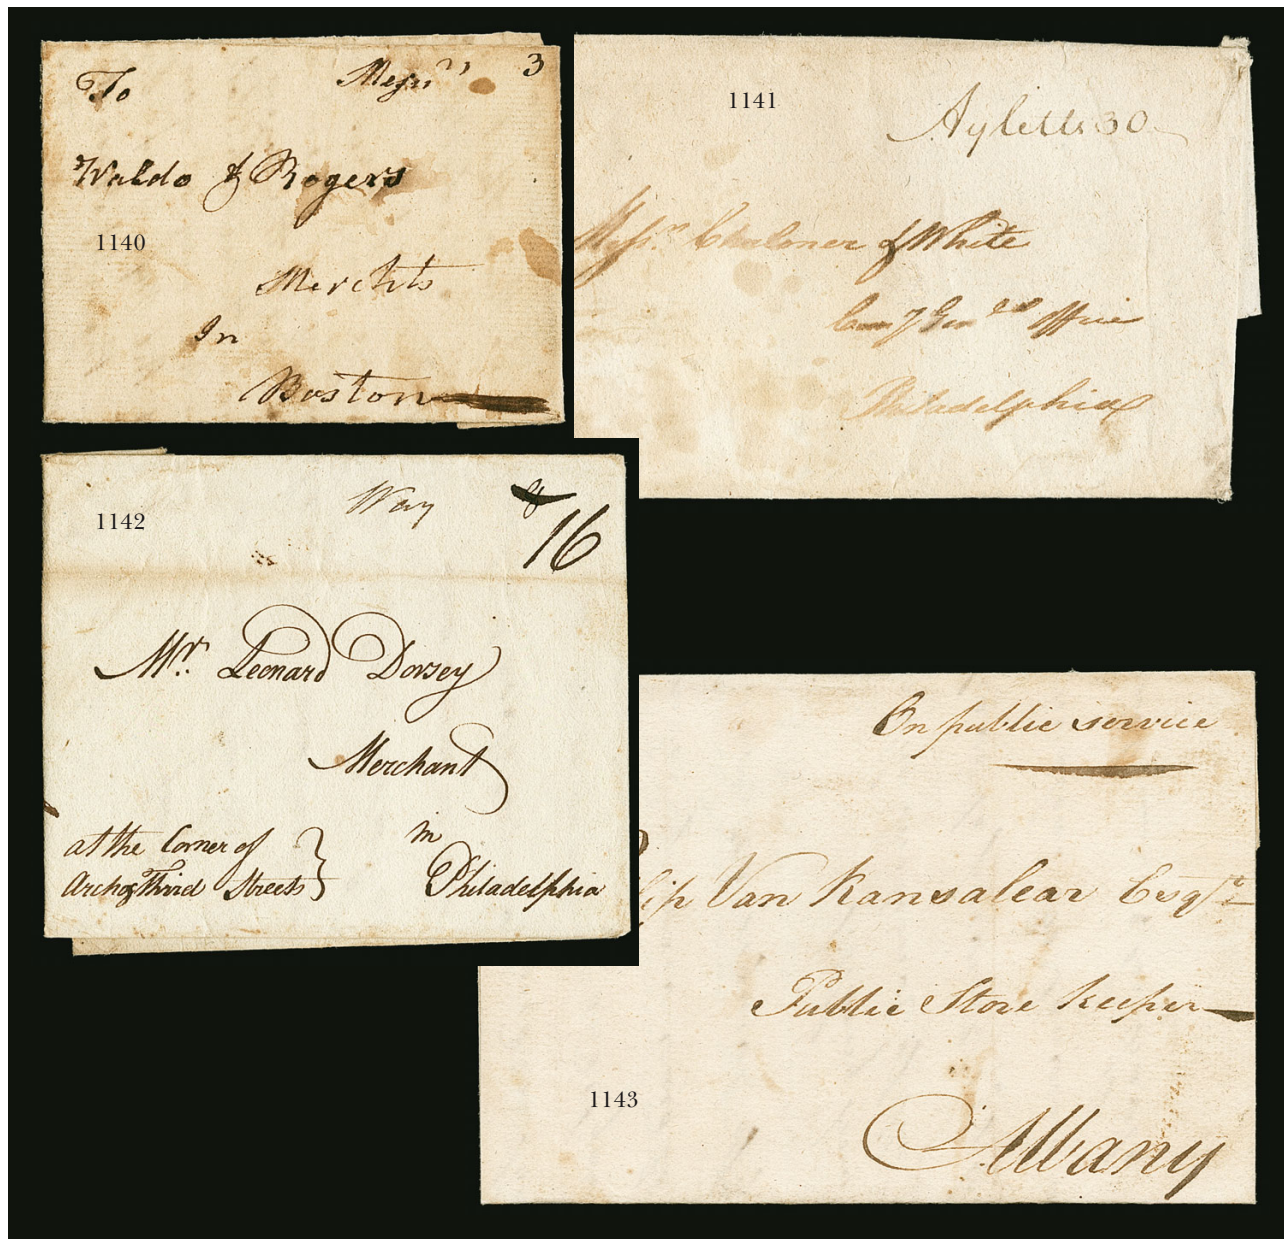 To Messrs 3
Waldo & Rogers
1140
Merchts
In
Boston
1141
Ayletts 30
Messrs Chaloner & White
Com'y Gen'l Office
Philadelphia
1142
Way
16
Mr. Leonard Dorsey
Merchant
at the Corner of
Arch & Third Streets
in
Philadelphia
On public service
lip Van Ransalear Esqr
Public Store Keeper
1143
Albany